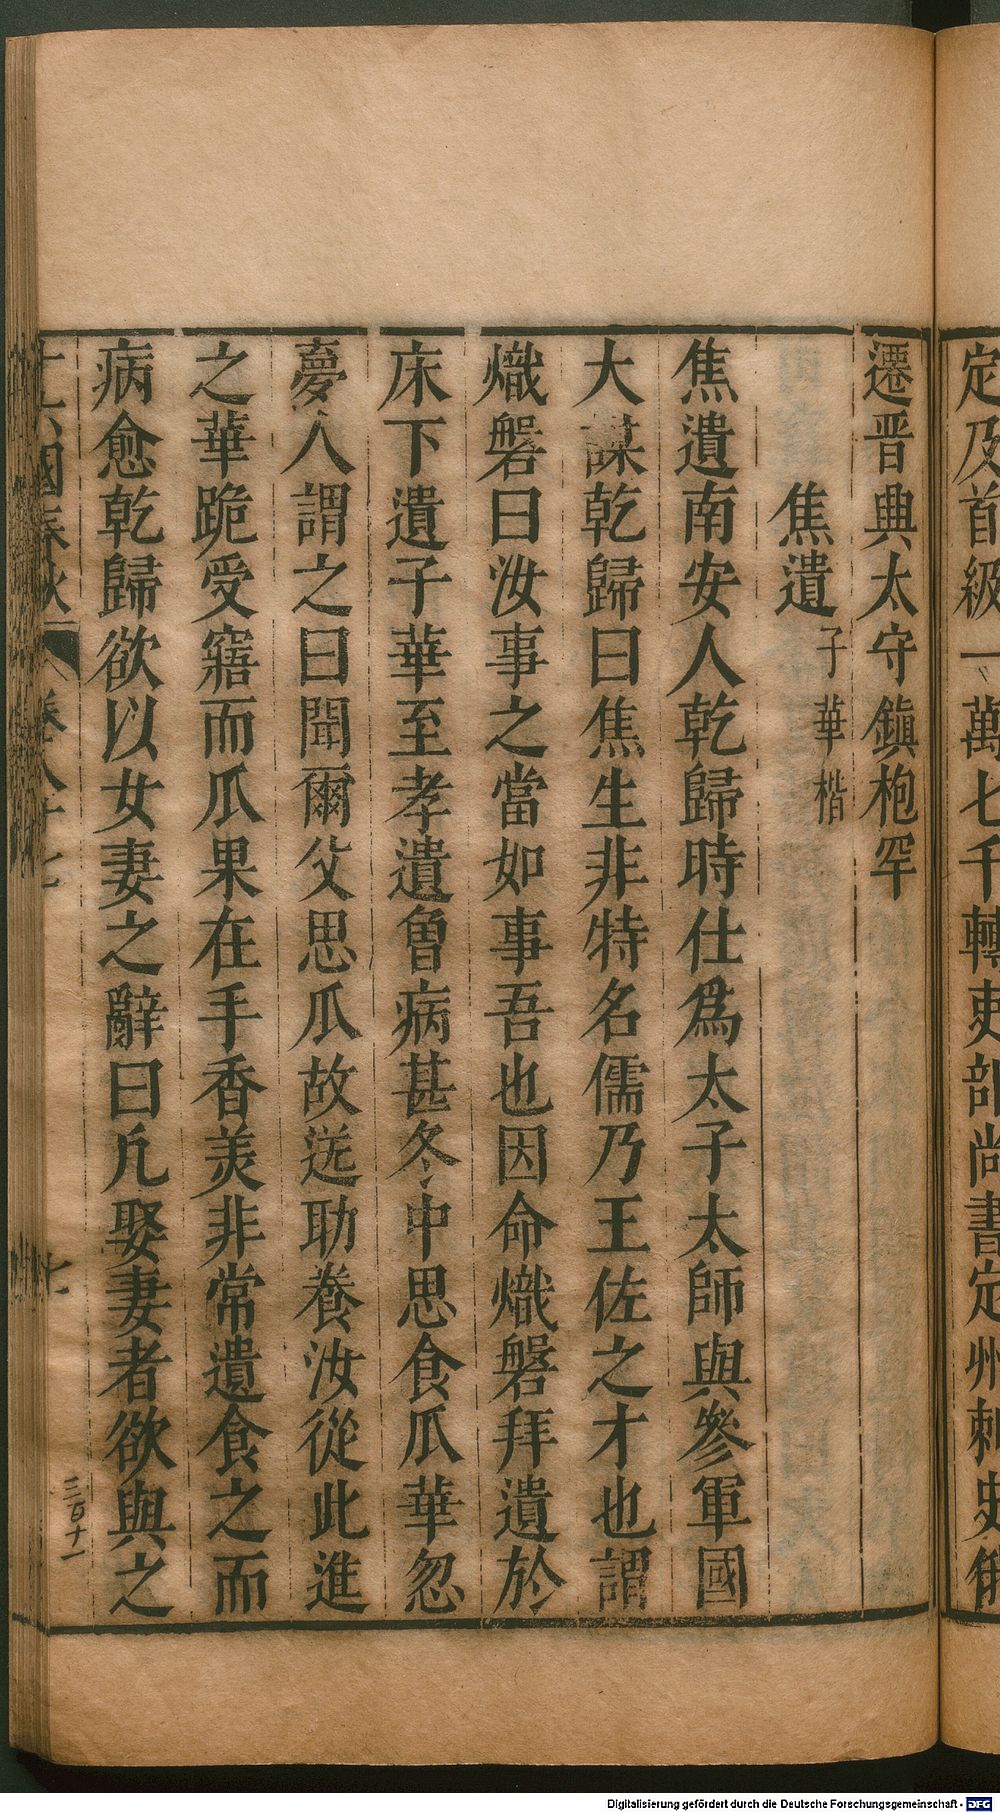 定及首級一萬七千轉吏部尚書定州刺史俄
遷晋典太守鎮枹罕
焦遺 子華 楷
焦遺南安人乾歸時仕爲太子太師與參軍國
大謀乾歸曰焦生非特名儒乃王佐之才也謂
熾磐曰汝事之當如事吾也因命熾磐拜遺於
床下遺子華至孝遺曾病甚冬中思食瓜華忽
夢人謂之曰聞爾父思瓜故送助養汝從此進
之華跪受寤而瓜果在手香羙非常遺食之而
病愈乾歸欲以女妻之辭曰凢娶妻者欲與之
十六國春秋 卷八十七 七
三百十一
Digitalisierung gefördert durch die Deutsche Forschungsgemeinschaft - DFG